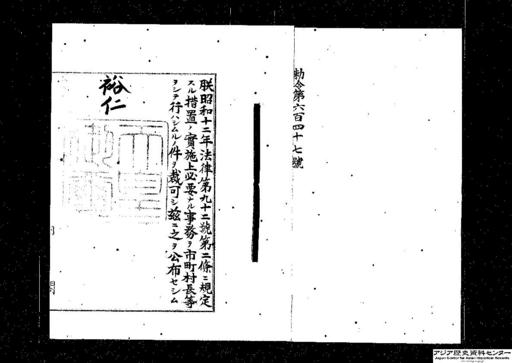 勅令第六百四十七號
朕昭和十二年法律第九十二號第二條ニ規定
スル措置ノ實施上必要ナル事務ヲ市町村長等
ヲシテ行ハシムルノ件ヲ裁可シ茲ニ之ヲ公布セシム
裕仁
内閣
アジア歴史資料センター
Japan Center for Asian Historical Records